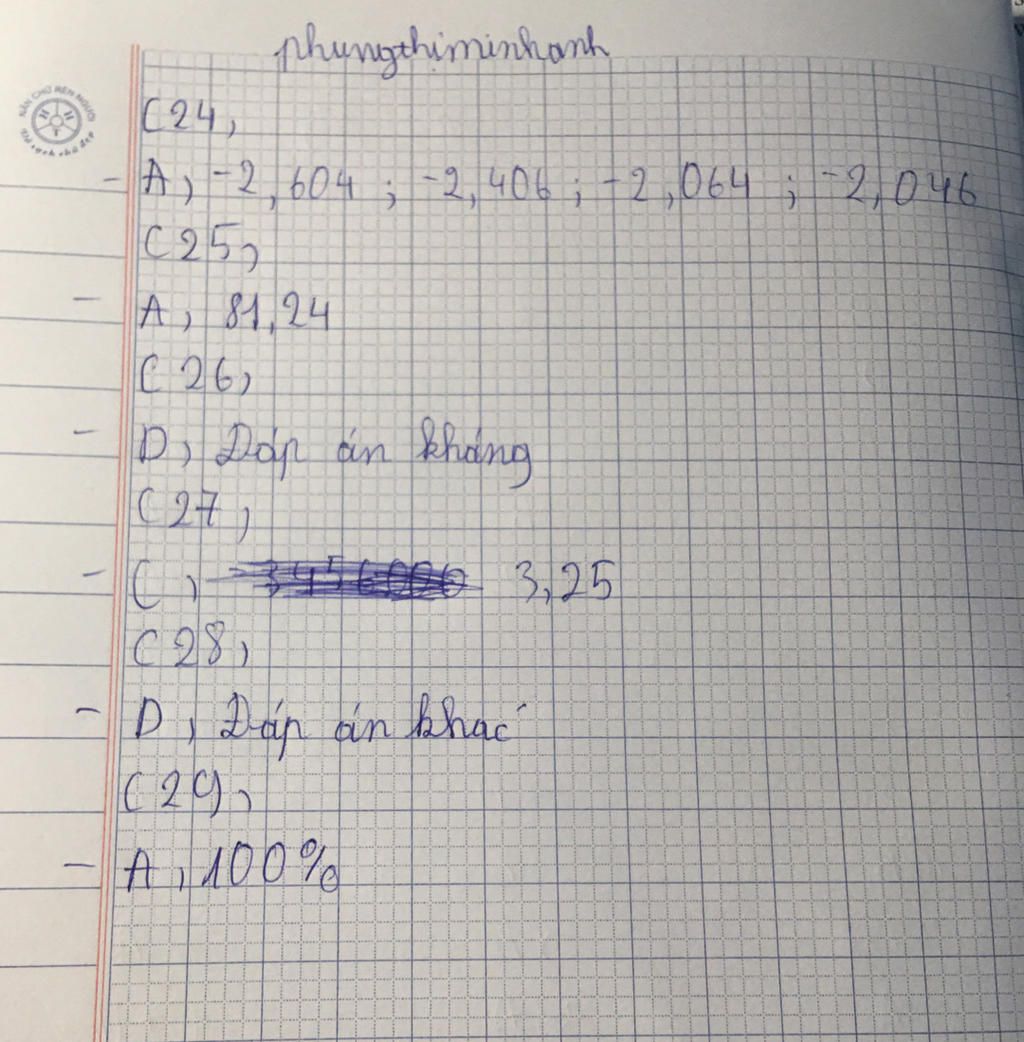 phungthiminhanh
NÂN CHỮ RÈN NGƯỜI
C24,
- A, -2,604 ; -2,406 ; -2,064 ; -2,046
C25,
- A, 81,24
C26,
- D, Đáp án kháng
C27,
- C, 3,25
C28,
- D, Đáp án khać
C29,
- A, 100%